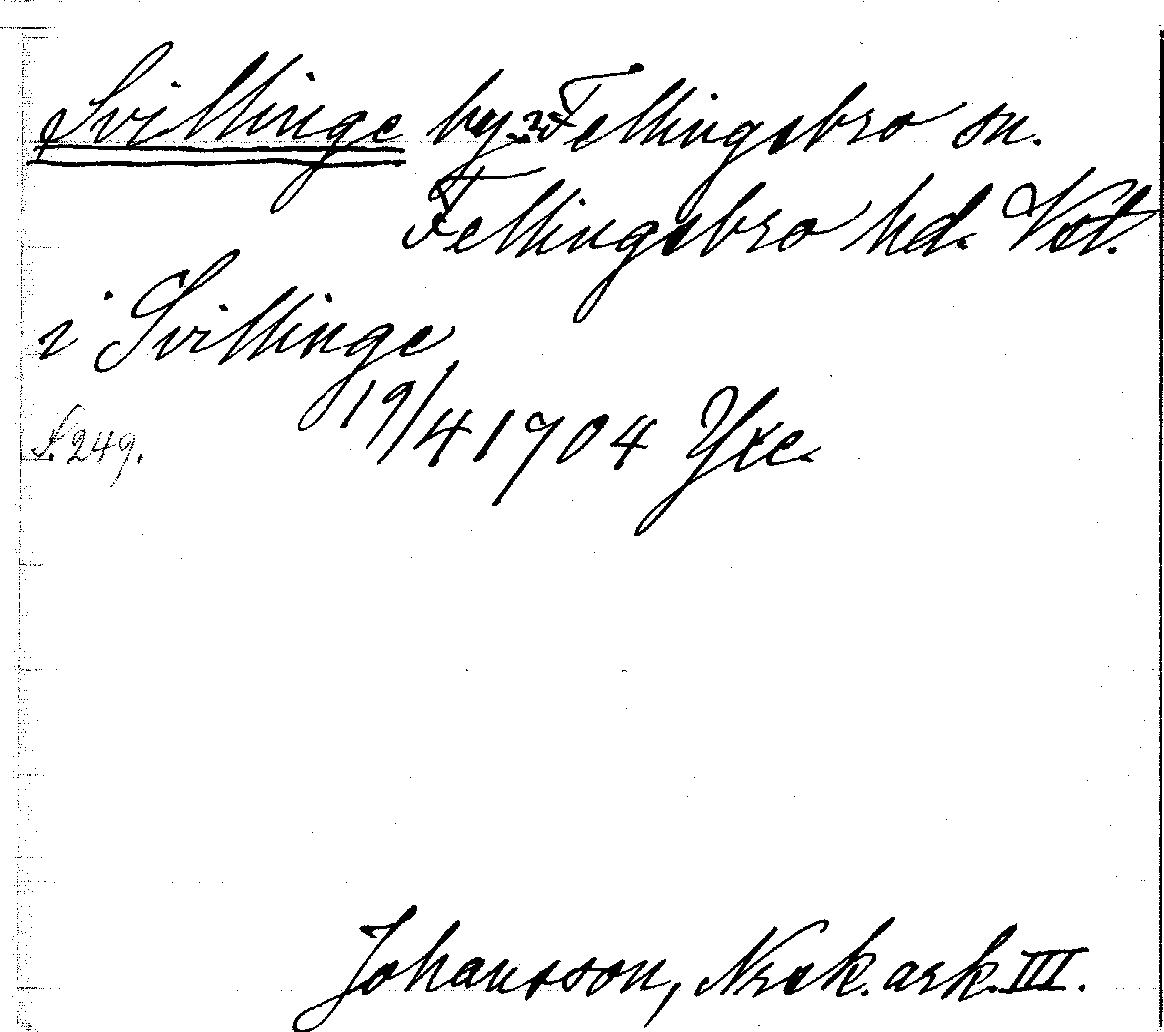 Svillinge by. Fellingsbro sn.
Fellingsbro hd. Vstl.
i Svillinge
19/4 1704 Yxe.
S. 249.
Johansson, Norsk. ark. III.